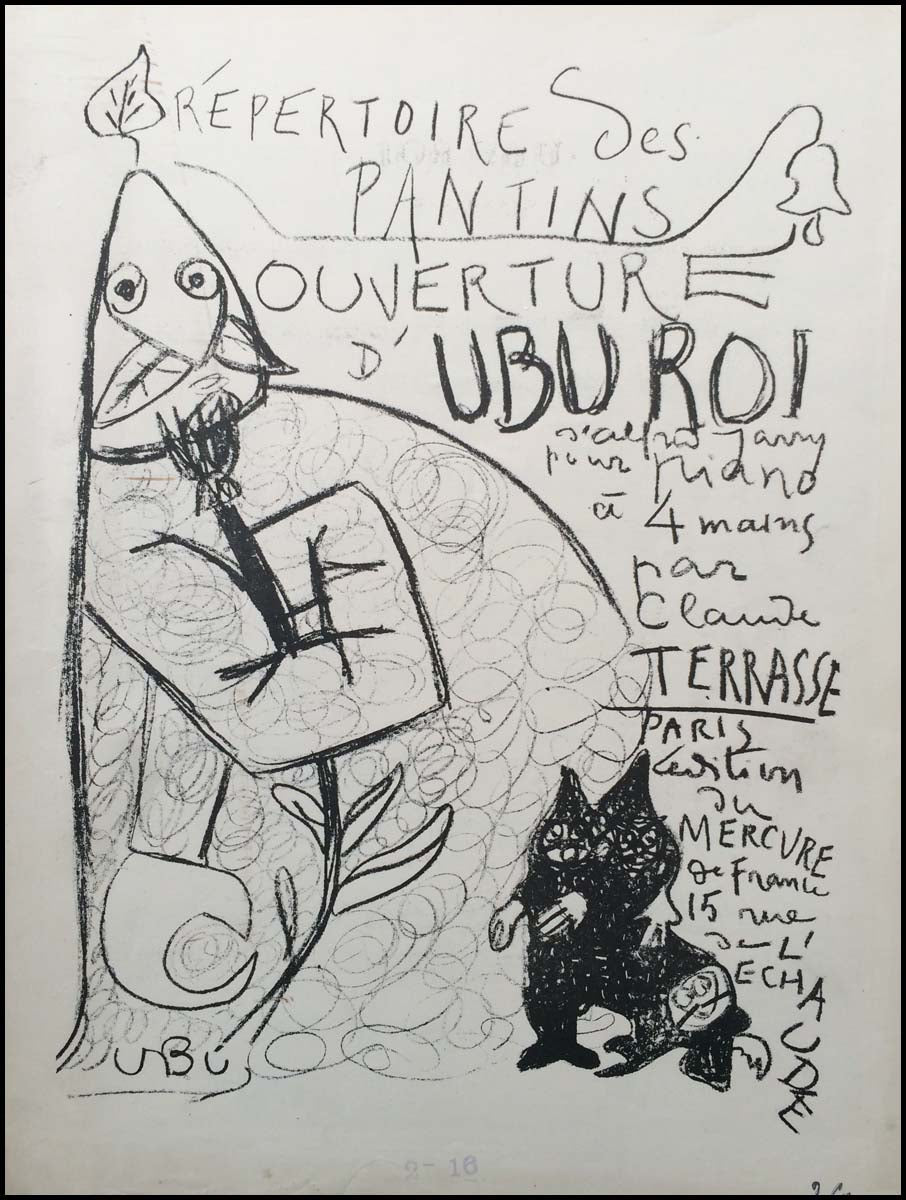 RÉPERTOIRE des
PANTINS
OUVERTURE
D' UBU ROI
d'alfred Jarry
pour piano
à 4 mains
par
Claude
TERRASSE
PARIS
édition
du
MERCURE
de France
15 rue
de L'
ECHAUDE
UBU
2-16